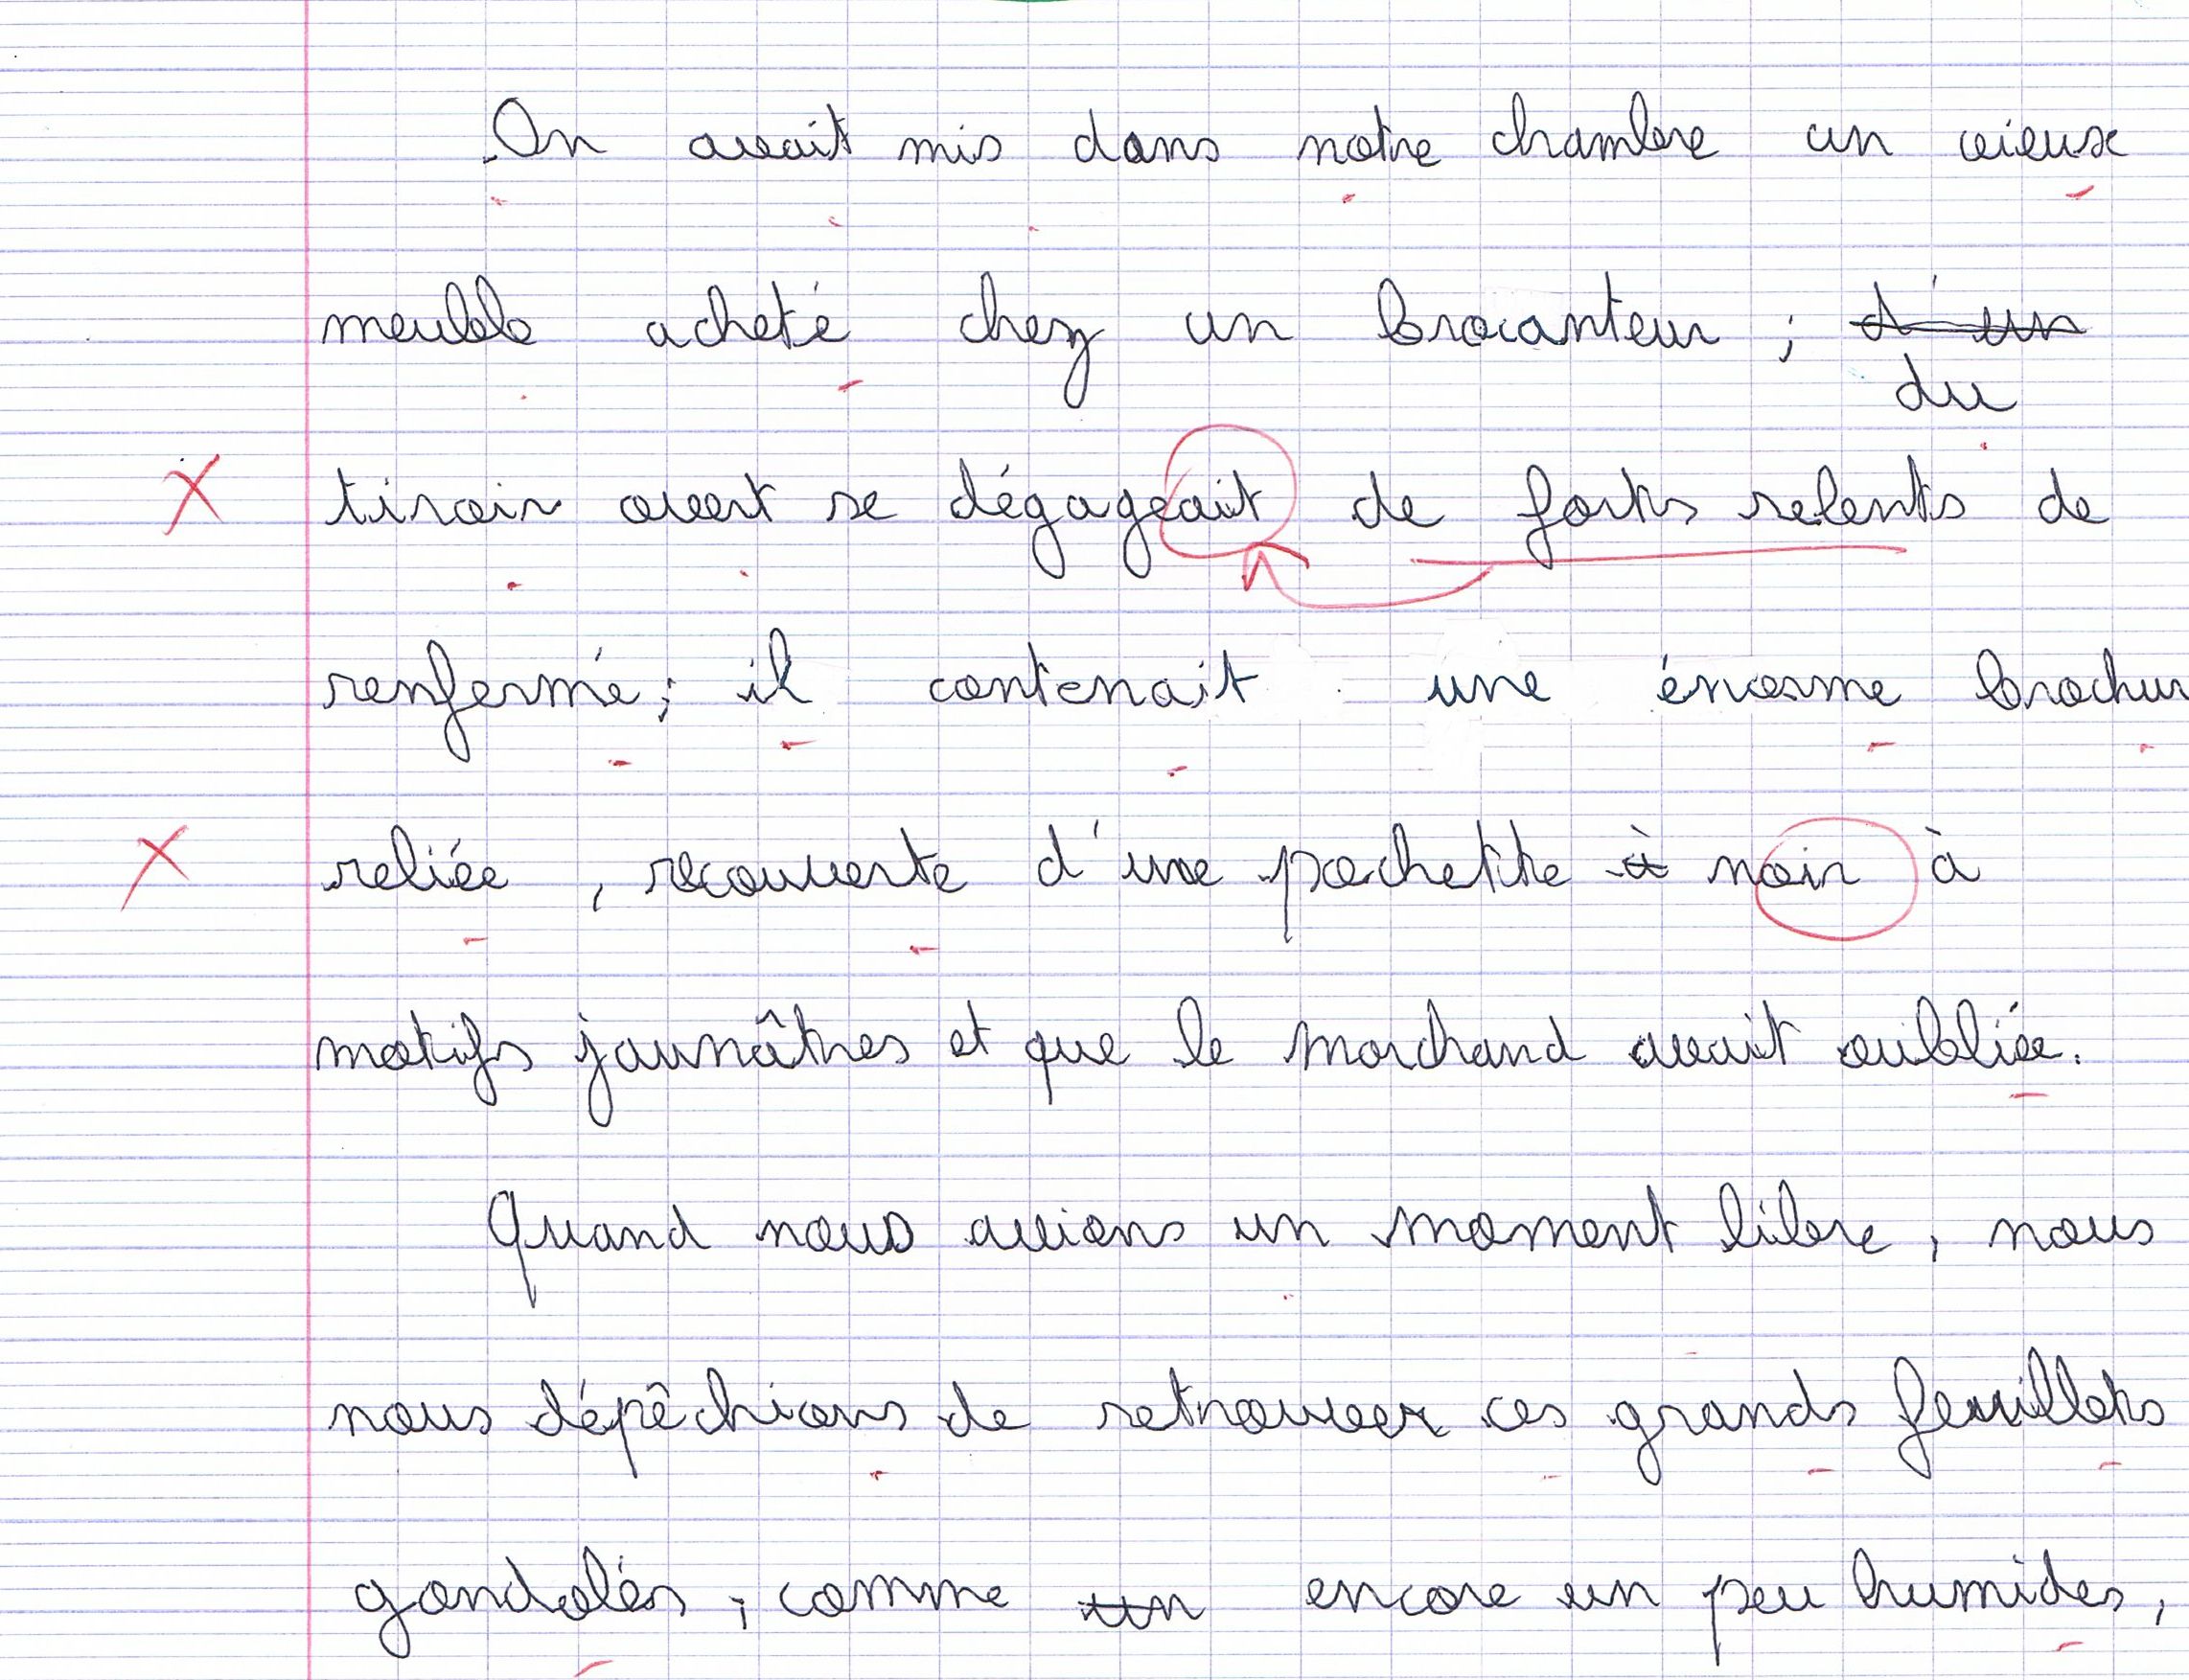 On avait mis dans notre chambre un vieux
meuble acheté chez un brocanteur ; d'un
du
tiroir ouvert se dégageait de forts relents de
renfermé ; il contenait une énorme brochur
reliée , recouverte d'une pochette à noir à
motifs jaunâtres et que le marchand avait oubliée.
Quand nous avions un moment libre , nous
nous dépêchions de retrouver ces grands feuillets
gondolés , comme un encore un peu humides ,